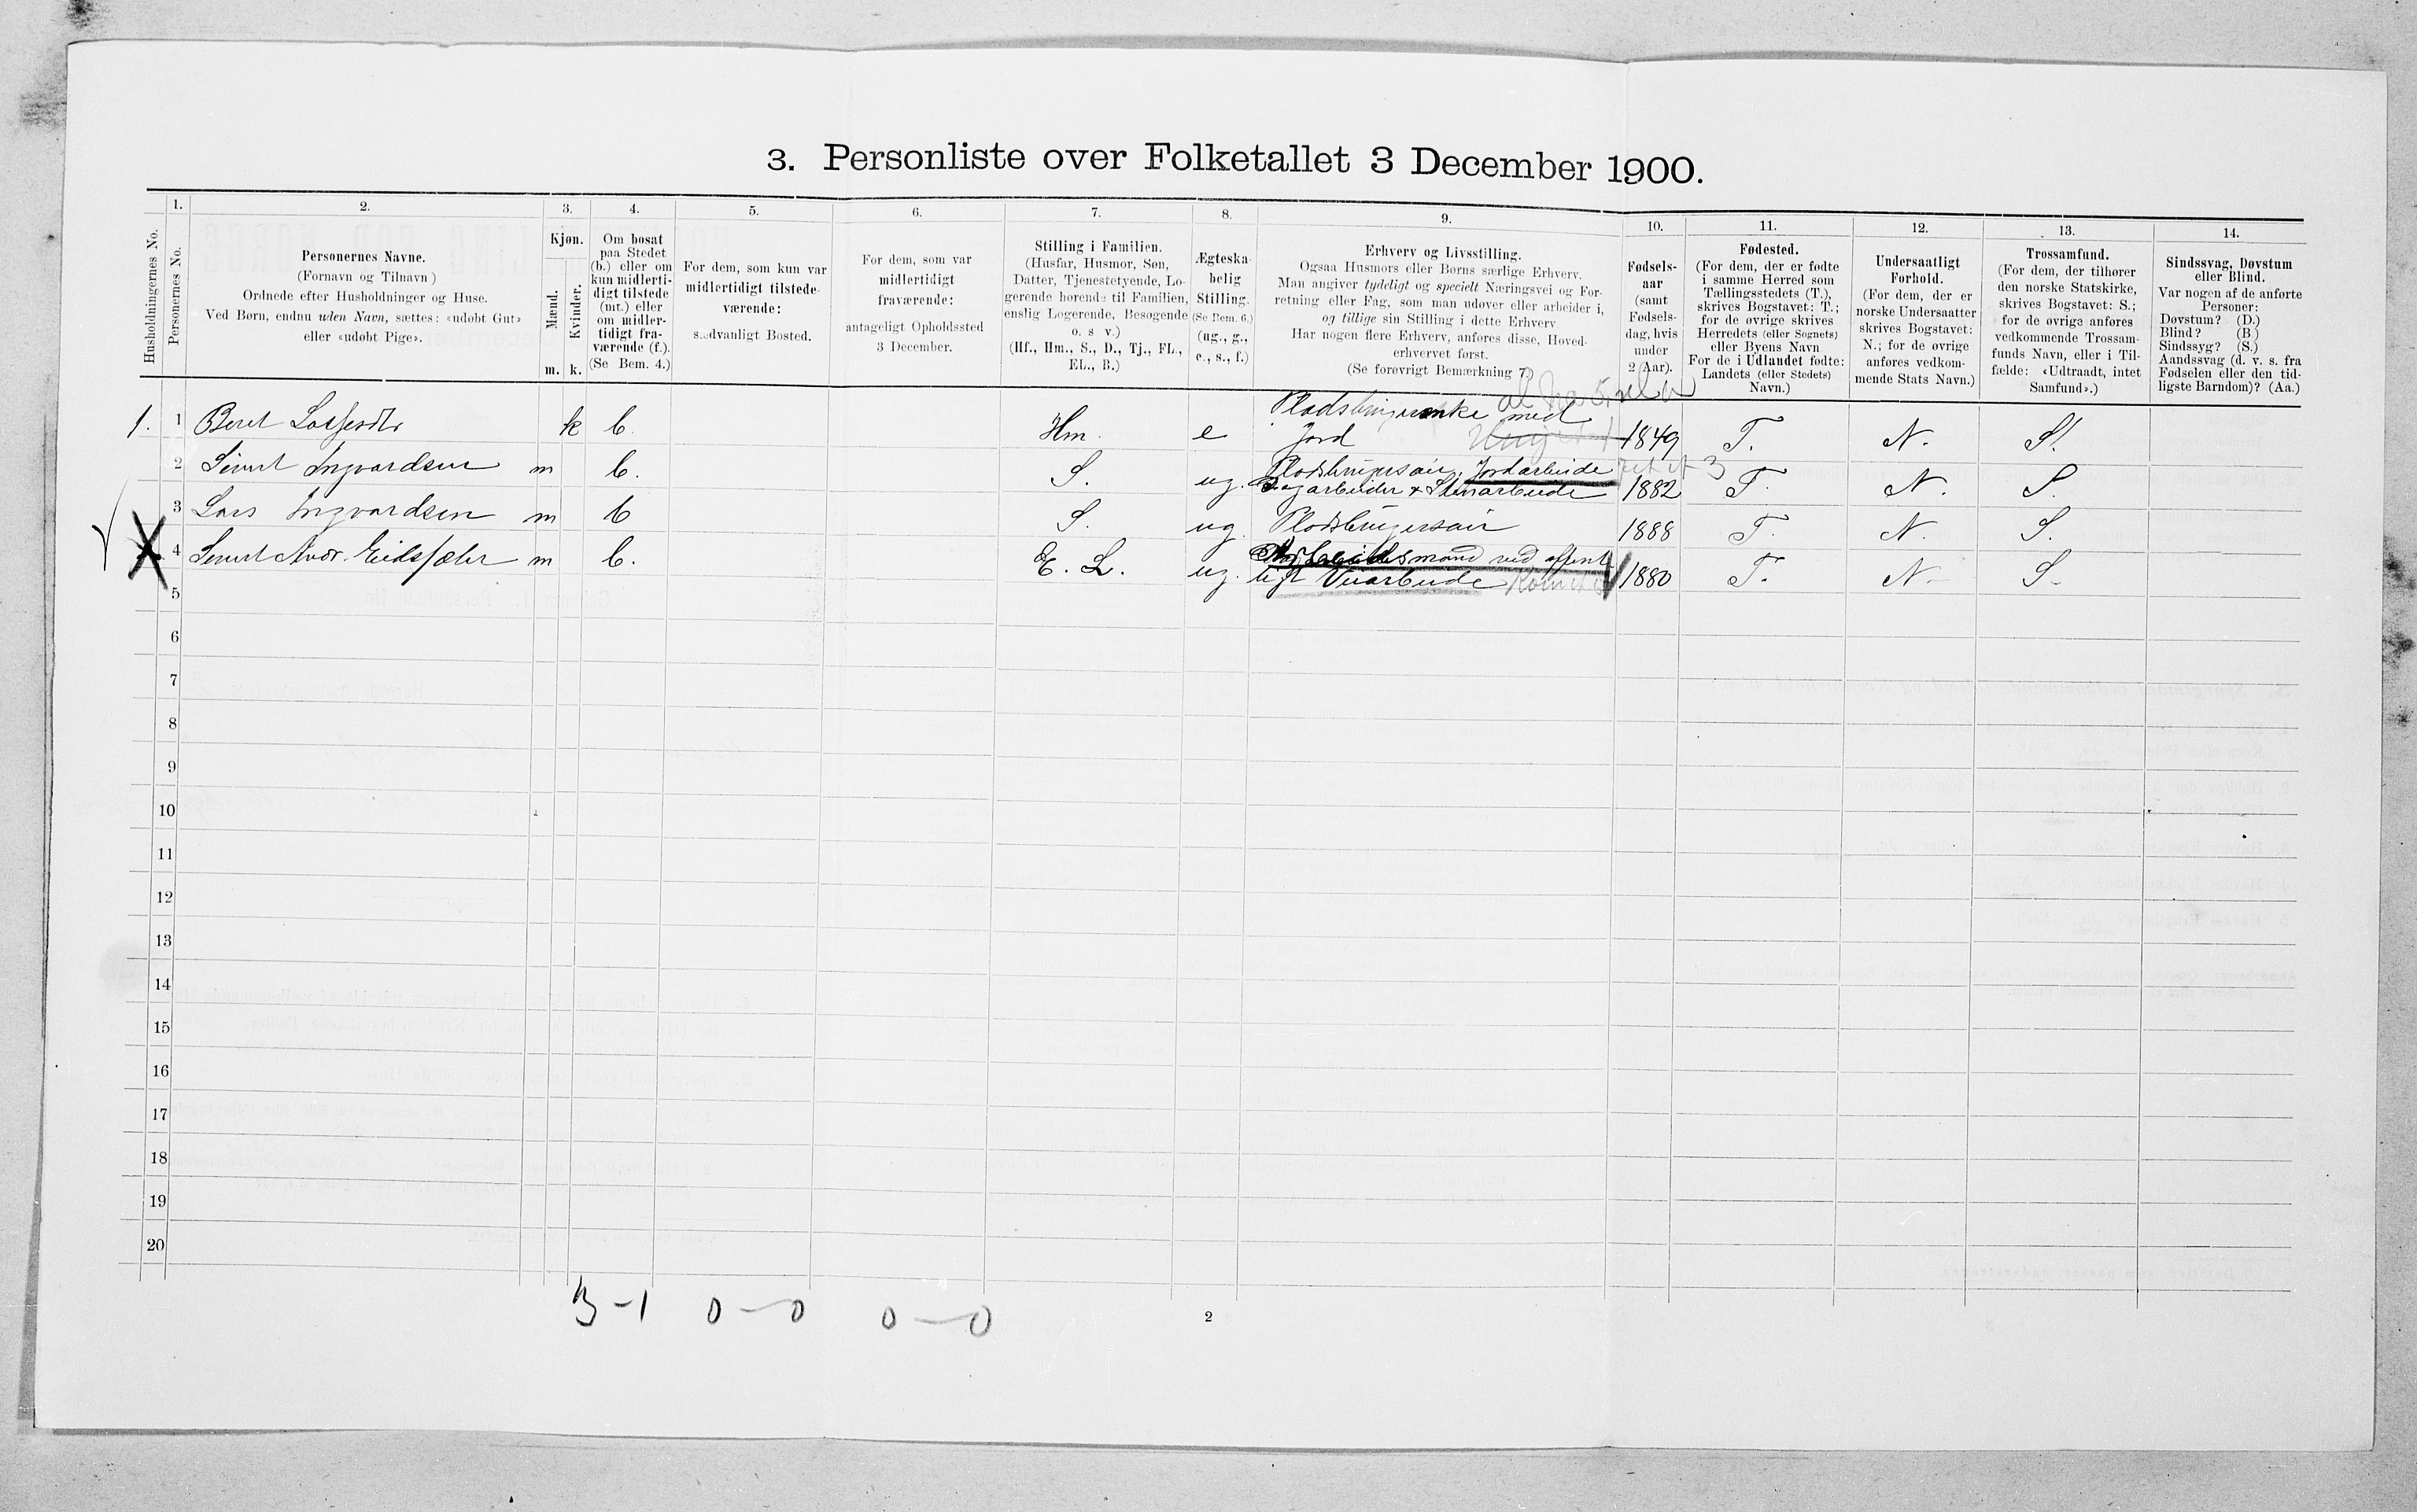 3. Personliste over Folketallet 3 December 1900.
Husholdningernes No.
1.
Personernes No.
2.
Personernes Navne.
(Fornavn og Tilnavn)
Ordnede efter Husholdninger og Huse.
Ved Børn, endnu uden Navn, sættes: «udøbt Gut»
eller «udøbt Pige».
3.
Kjøn.
Mænd.
Kvinder.
m. k.
4.
Om bosat
paa Stedet
(b.) eller om
kun midlerti-
digt tilstede
(mt.) eller
om midler-
tidigt fra-
værende (f.).
(Se Bem. 4.)
5.
For dem, som kun var
midlertidigt tilstede-
værende:
sædvanligt Bosted.
6.
For dem, som var
midlertidigt
fraværende:
antageligt Opholdssted
3 December.
7.
Stilling i Familien.
(Husfar, Husmor, Søn,
Datter, Tjenestetyende, Lo-
gerende hørende til Familien,
enslig Logerende, Besøgende
o. s v.)
(Hf., Hm., S., D., Tj., FL.,
EL., B.)
8.
Ægteska-
belig
Stilling.
(Se Bem. 6.)
(ug., g.,
e., s., f.)
9.
Erhverv og Livsstilling.
Ogsaa Husmors eller Børns særlige Erhverv.
Man angiver tydeligt og specielt Næringsvei og For-
retning eller Fag, som man udøver eller arbeider i,
og tillige sin Stilling i dette Erhverv
Har nogen flere Erhverv, anføres disse, Hoved-
erhvervet først.
(Se forøvrigt Bemærkning 7)
10.
Fødsels-
aar
(samt
Fødsels-
dag, hvis
under
2 Aar).
11.
Fødested.
(For dem, der er fødte
i samme Herred som
Tællingsstedets (T.),
skrives Bogstavet: T.;
for de øvrige skrives
Herredets (eller Sognets)
eller Byens Navn
For de i Udlandet fødte:
Landets (eller Stedets)
Navn.)
12.
Undersaatligt
Forhold.
(For dem, der er
norske Undersaatter
skrives Bogstavet:
N.; for de øvrige
anføres vedkom-
mende Stats Navn.)
13.
Trossamfund.
(For dem, der tilhører
den norske Statskirke,
skrives Bogstavet: S.;
for de øvrige anføres
vedkommende Trossam-
funds Navn, eller i Til-
fælde: «Udtraadt, intet
Samfund».)
14.
Sindssvag, Døvstum
eller Blind.
Var nogen af de anførte
Personer:
Døvstum? (D.)
Blind? (B.)
Sindssyg? (S.)
Aandssvag (d. v. s. fra
Fødselen eller den tid-
ligste Barndom)? (Aa.)
1. 1 Beret k b. Hm. e Pladsbrugerenke med
Jord 1849 T. N. S.
2 Sivert Ingvardsen m b. S. ug. Pladsbrugersøn, Jordarbeide
Dagarbeider & Stenarbeide 1882 T. N. S.
3 Lars Ingvardsen m b S. ug Pladsbrugersøn 1888 T. N. S.
4 Sivert m b. E. L. ug. Arbeidsmand ved offent
ligt Veiarbeide 1880 T. N. S.
5
6
7
8
9
10
11
12
13
14
15
16
17
18
19
20
3-1 0-0 0-0
2